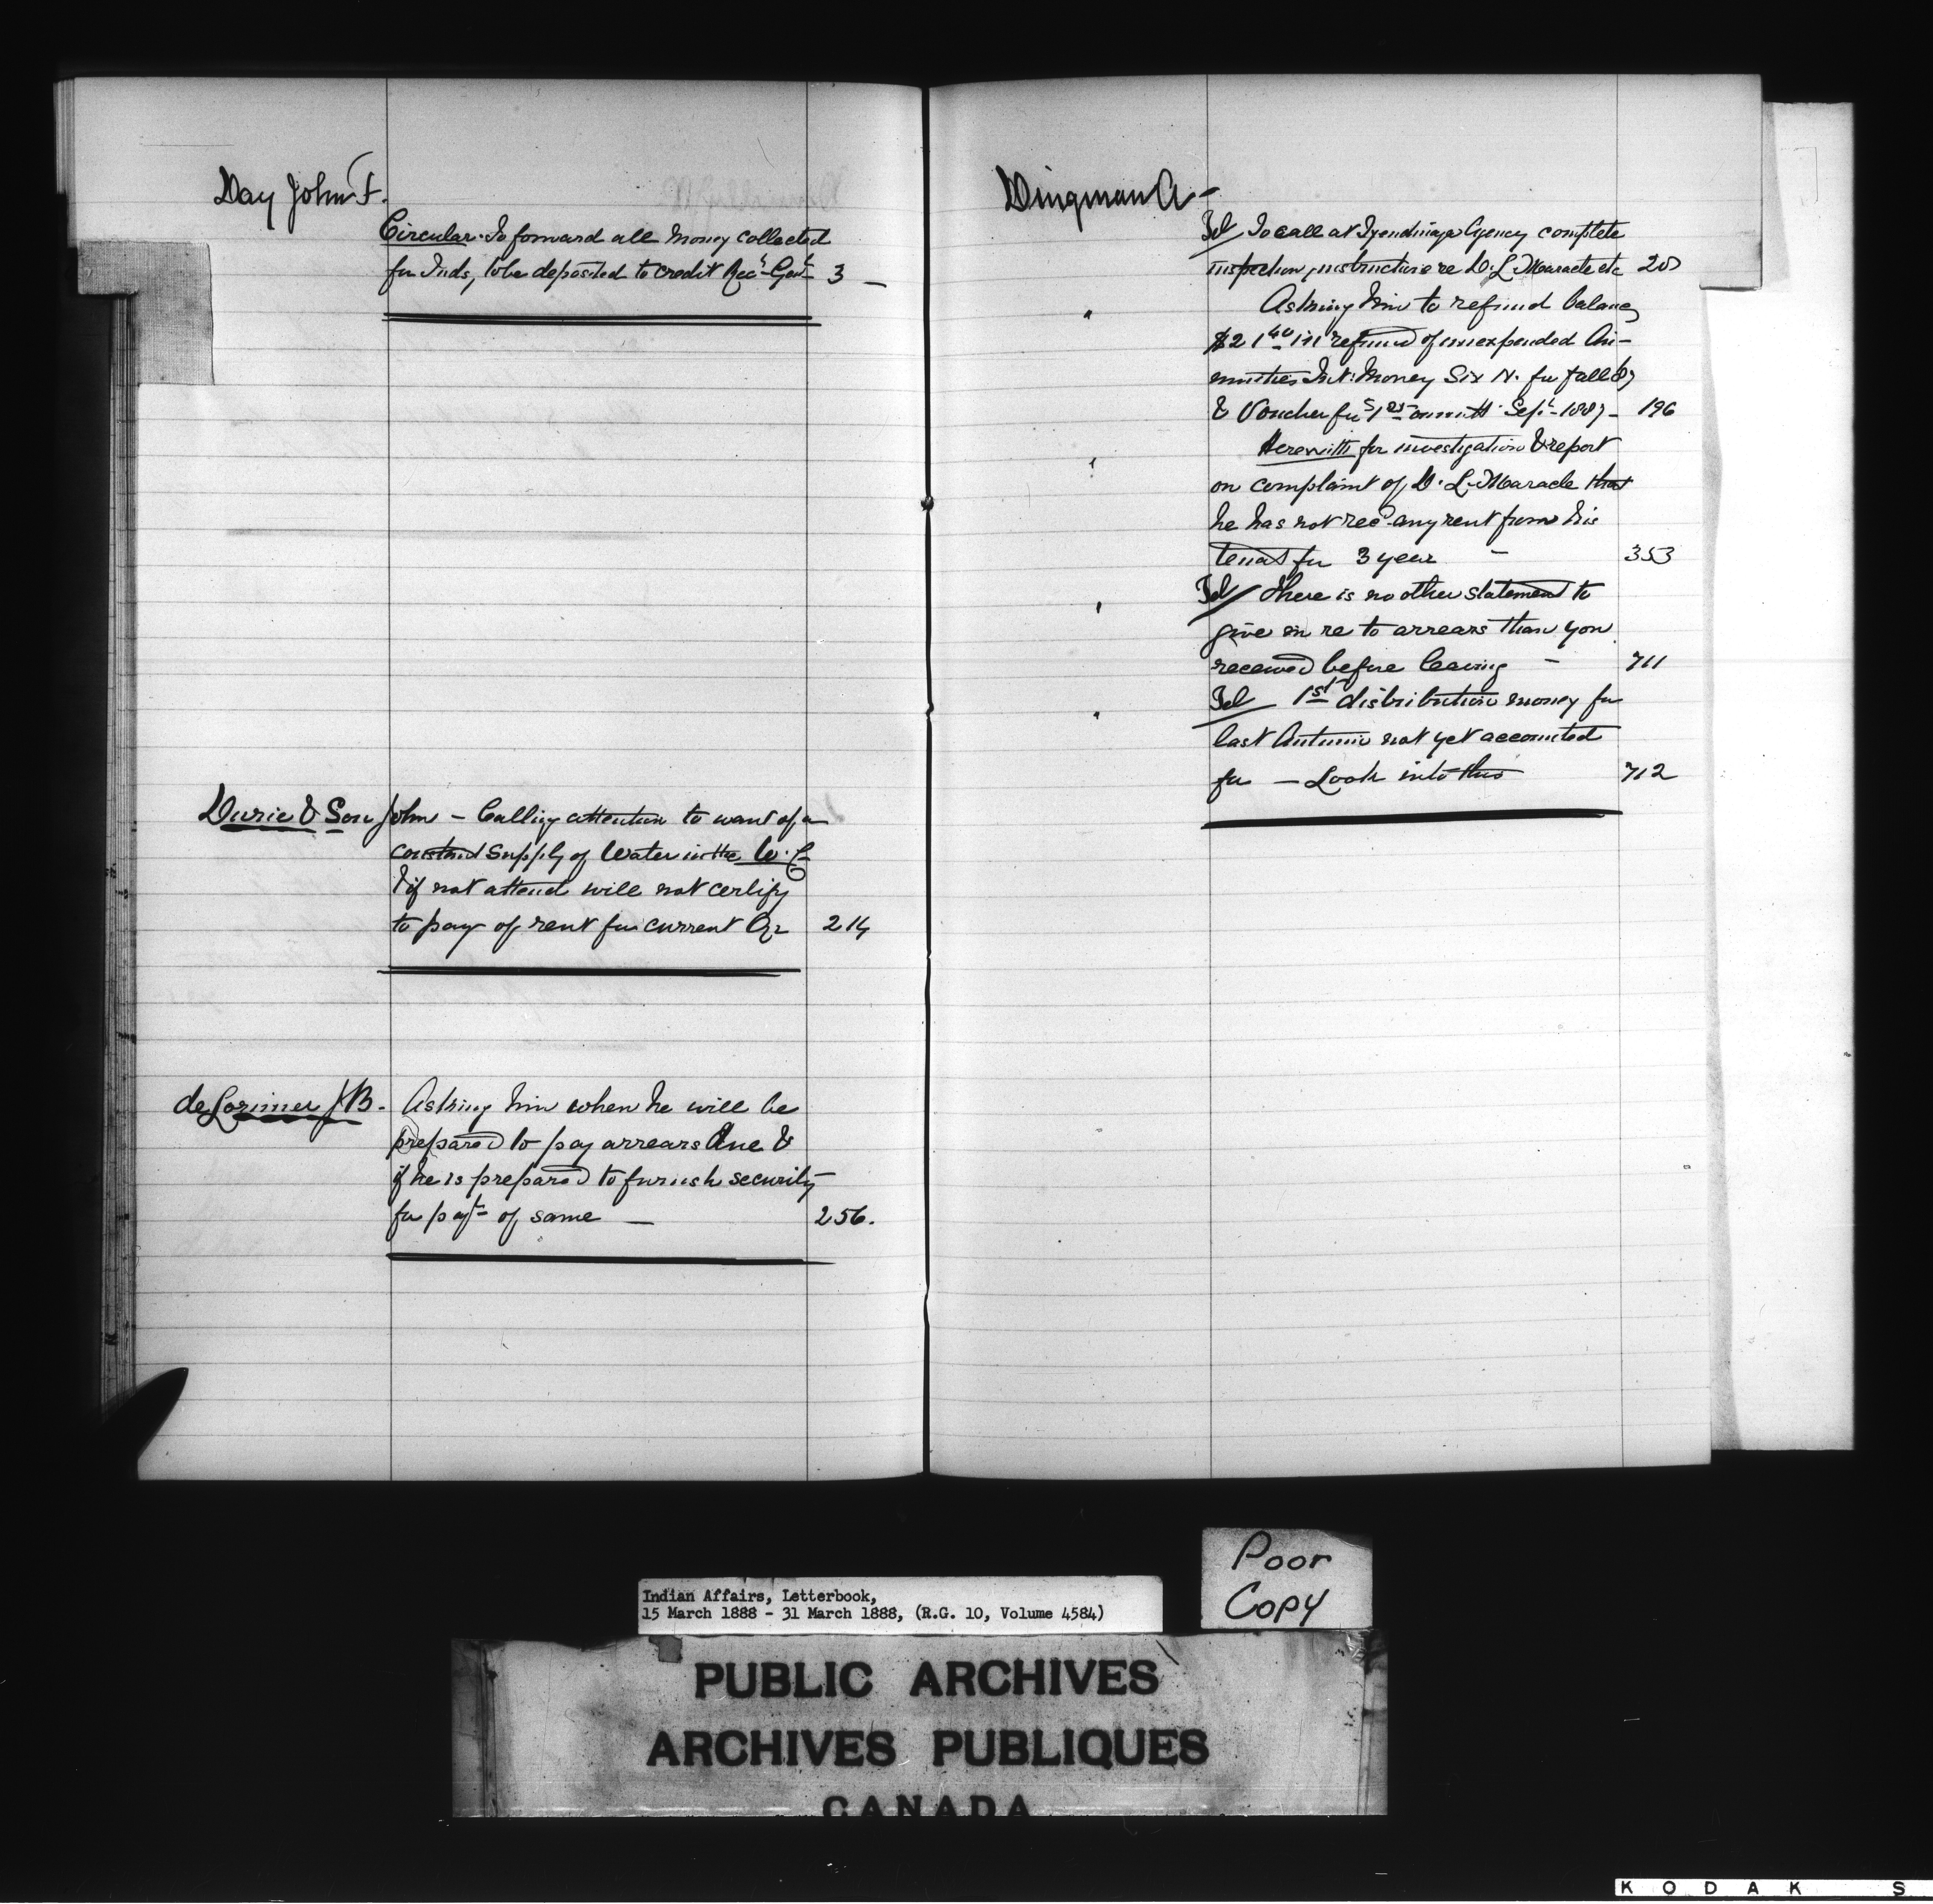 Day John F.
Circular. To forward all money collected
for Inds, to be deposited to credit Recr Genl 3
Durie & Son John – Calling attention to want of a
constant supply of Water in the W. C
& if not attend will not certify
to pay of rent for current Qr 214
deLorimer J B. Asking him when he will be
prepared to pay arrears due &
if he is prepared to furnish security
for payt of same — 256.
Dingman A –
Tel / To call at Tyendinaga Agency complete
inspection, instructions re D. L. Maracle etc 20
" Asking him to refund balance
$21 40 in refund of unexpended An-
nuities Int: Money Six N. for fall 87
& Voucher for 1 Sept – 1887 – 196
" Herewith for investigation & report
on complaint of D. L. Maracle that
he has not recd any rent from his
tenant for 3 year – 353
" Tel / There is no other statement to
give in re to arrears than you
received before leaving – 711
" Tel / 1st distribution money for
last Autumn not yet accounted
for – Look into this 712
Poor
Copy
Indian Affairs, Letterbook,
15 March 1888 - 31 March 1888, (R.G. 10, Volume 4584)
PUBLIC ARCHIVES
ARCHIVES PUBLIQUES
CANADA
KODAK S